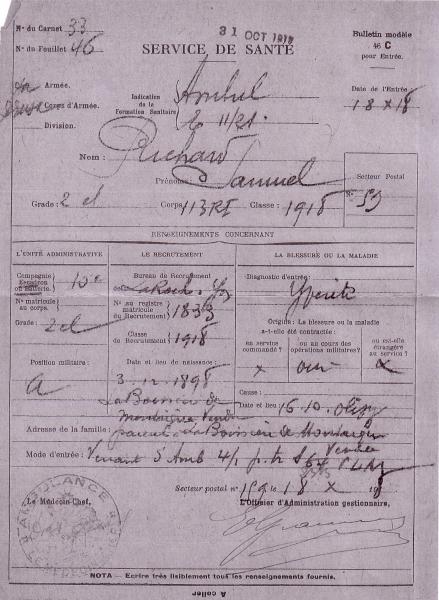 N° du Carnet 33
31 OCT 191
Bulletin modèle
46 C
pour Entrée.
N° du Feuillet 46
SERVICE DE SANTÉ
Armée.
Corps d'Armée.
Division.
Indication
de la
Formation Sanitaire
Ambul
2 11/21.
Date de l'Entrée
18 X 18
Nom : Richard
Prénoms Samuel
Secteur Postal
N° 59
Grade : 2 cl Corps 113 RI Classe : 1918
RENSEIGNEMENTS CONCERNANT
L'UNITÉ ADMINISTRATIVE
LE RECRUTEMENT
LA BLESSURE OU LA MALADIE
Compagnie
Escadron
ou Batterie.
10e
Bureau de Recrutement
de La Roche s/Yon
Diagnostic d'entrée :
Ypérité
N° matricule
au corps.
N° au registre
matricule
du Recrutement
1833
Origine : La blessure ou la maladie
a-t-elle été contractée :
Grade : 2cl
Classe
de Recrutement
1918
en service
commandé ?
ou au cours des
opérations militaires ?
ou est-elle
étrangère
au service ?
x
oui
x
Position militaire :
A
Date et lieu de naissance :
1898
La Boissière de
Montaigu Vendée
Cause :
Date et lieu 16.10.
Adresse de la famille : parents La Boissière de Montaigu
Vendée
Mode d'entrée : Venant d'Amb 4/1 p. tr
Secteur postal n° 169 le 18 X 191
Le Médecin-Chef,
L'Officier d'Administration gestionnaire,
AMBULANCE
NOTA — Ecrire très lisiblement tous les renseignements fournis.
A coller